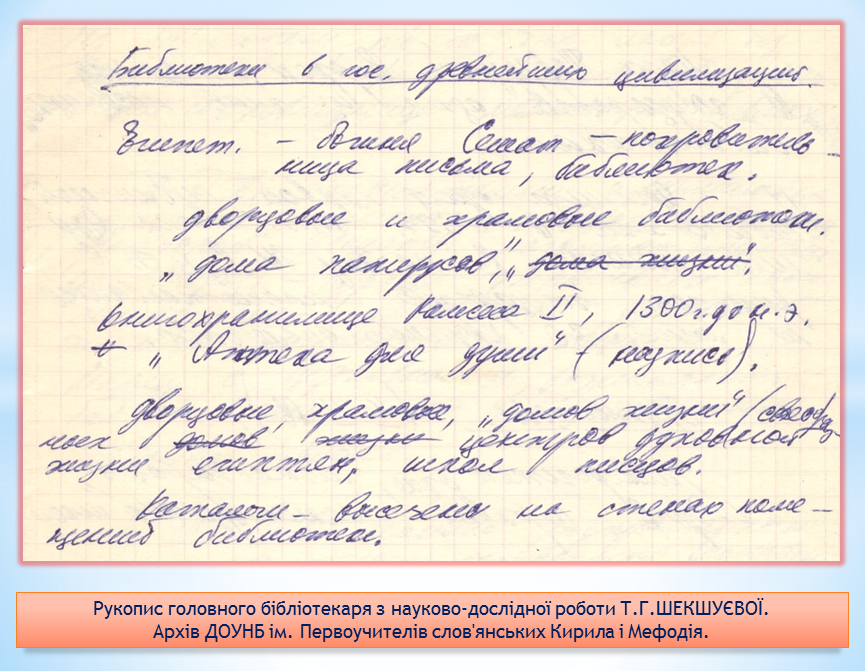 Библиотеки в гос. древнейших цивилизаций.
Египет. – богиня Сешат – покровитель-
ница письма, библиотек.
дворцовые и храмовые библиотеки.
„дома папирусов", „дома жизни".
книгохранилище Рамсеса II, 1300 г. до н. э.
„Аптека для души" (надпись).
дворцовые, храмовые, „домов жизни" (
ных домов жизни центров духовной
жизни египтян, школ писцов.
Каталоги – высечены на стенах поме-
щений библиотеки.
Рукопис головного бібліотекаря з науково-дослідної роботи Т.Г.ШЕКШУЄВОЇ.
Архів ДОУНБ ім. Первоучителів слов'янських Кирила і Мефодія.